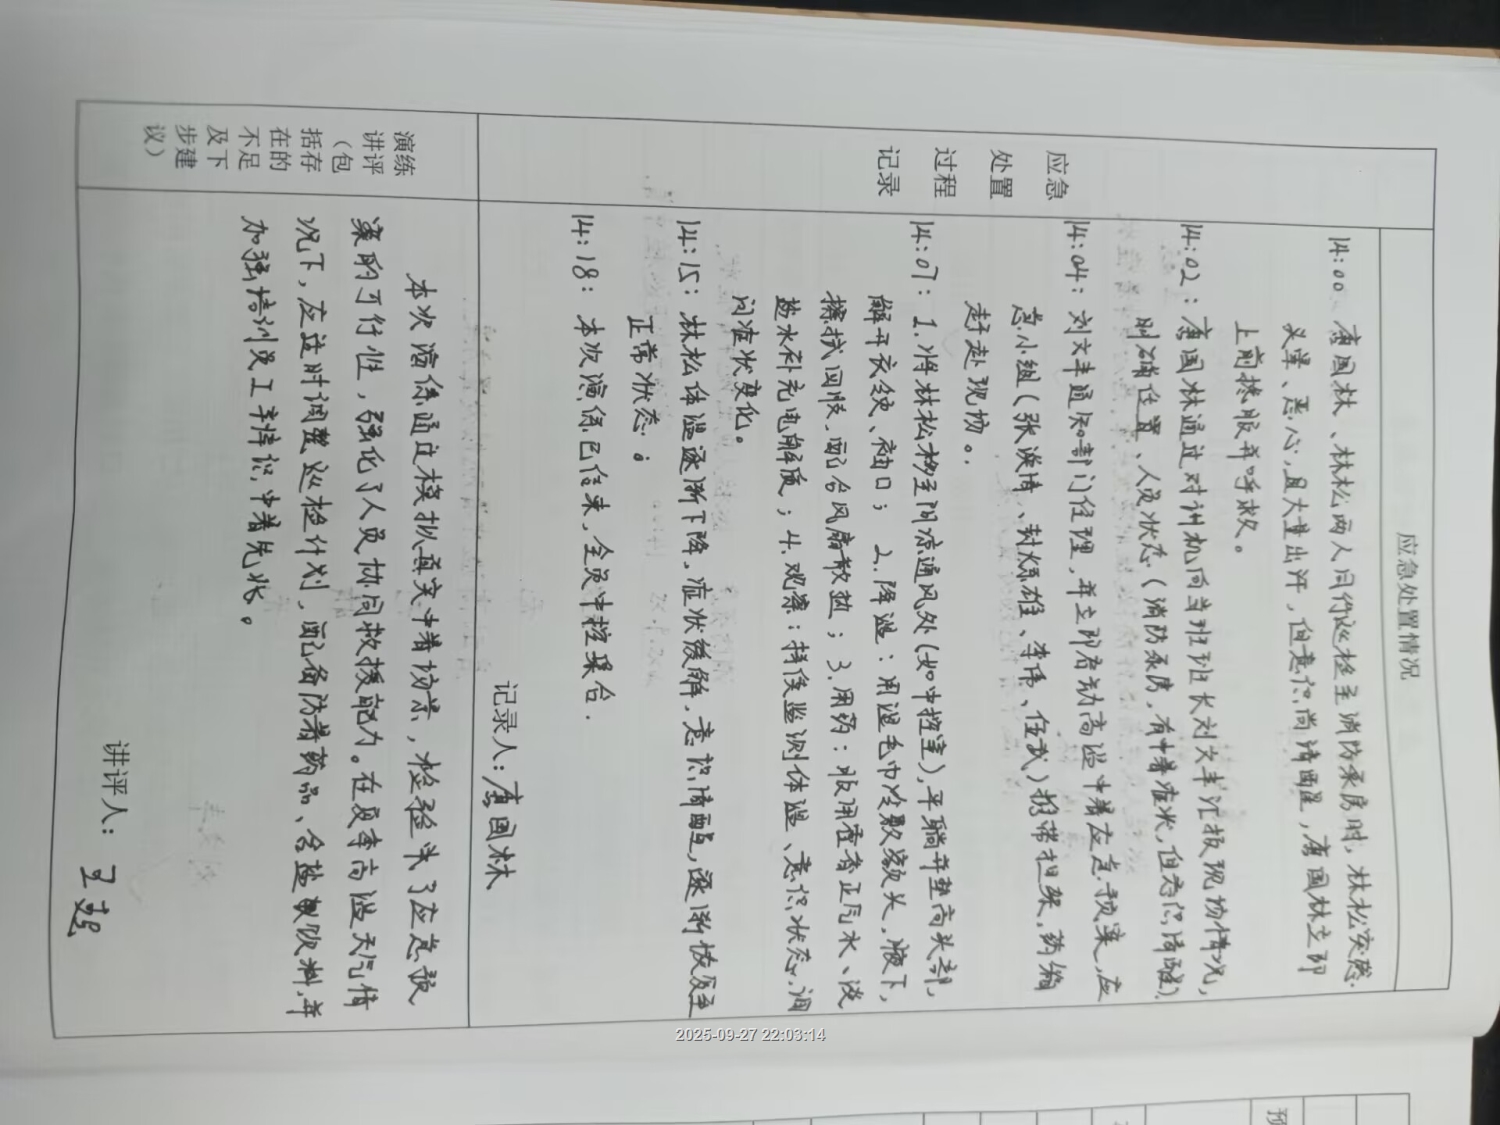 应急处置情况
应急
处置
过程
记录
14:00 唐国林、林松两人同行巡检至消防泵房时,林松突感
头晕、恶心,且大量出汗,但意识尚清醒,唐国林立即
上前搀服并呼救。
14:02:唐国林通过对讲机向当班班长刘文丰汇报现场情况,
明确位置、人员状态(消防泵房,有中暑症状,但意识清醒)。
14:04:刘文丰通知部门经理,并立即启动高温中暑应急预案,应
急小组(张滨清、封炼雄、李伟、任武)携带担架,药箱
赶赴现场。
14:07:1.将林松移至阴凉通风处(如中控室),平躺并垫高头部,
解开衣领、袖口;2.降温:用湿毛巾冷敷额头,腋下,
擦拭四肢,配合风扇散热;3.用药:服用藿香正气水、淡
盐水补充电解质;4.观察:持续监测体温、意识状态,询
问症状变化。
14:15:林松体温逐渐下降,症状缓解,意识清醒,逐渐恢复至
正常状态。
14:18:本次演练已结束,全员中控集合.
记录人:唐国林
演练
讲评
(包
括存
在的
不足
及下
步建
议)
本次演练通过模拟真实中暑场景,检验来了应急预
案的可行性,强化了人员协同救援能力。在夏季高温天气情
况下,应适时调整巡检计划,配备防暑药品、含盐饮料,并
加强培训员工辨识中暑先兆。
讲评人:王
预
2025-09-27 22:03:14